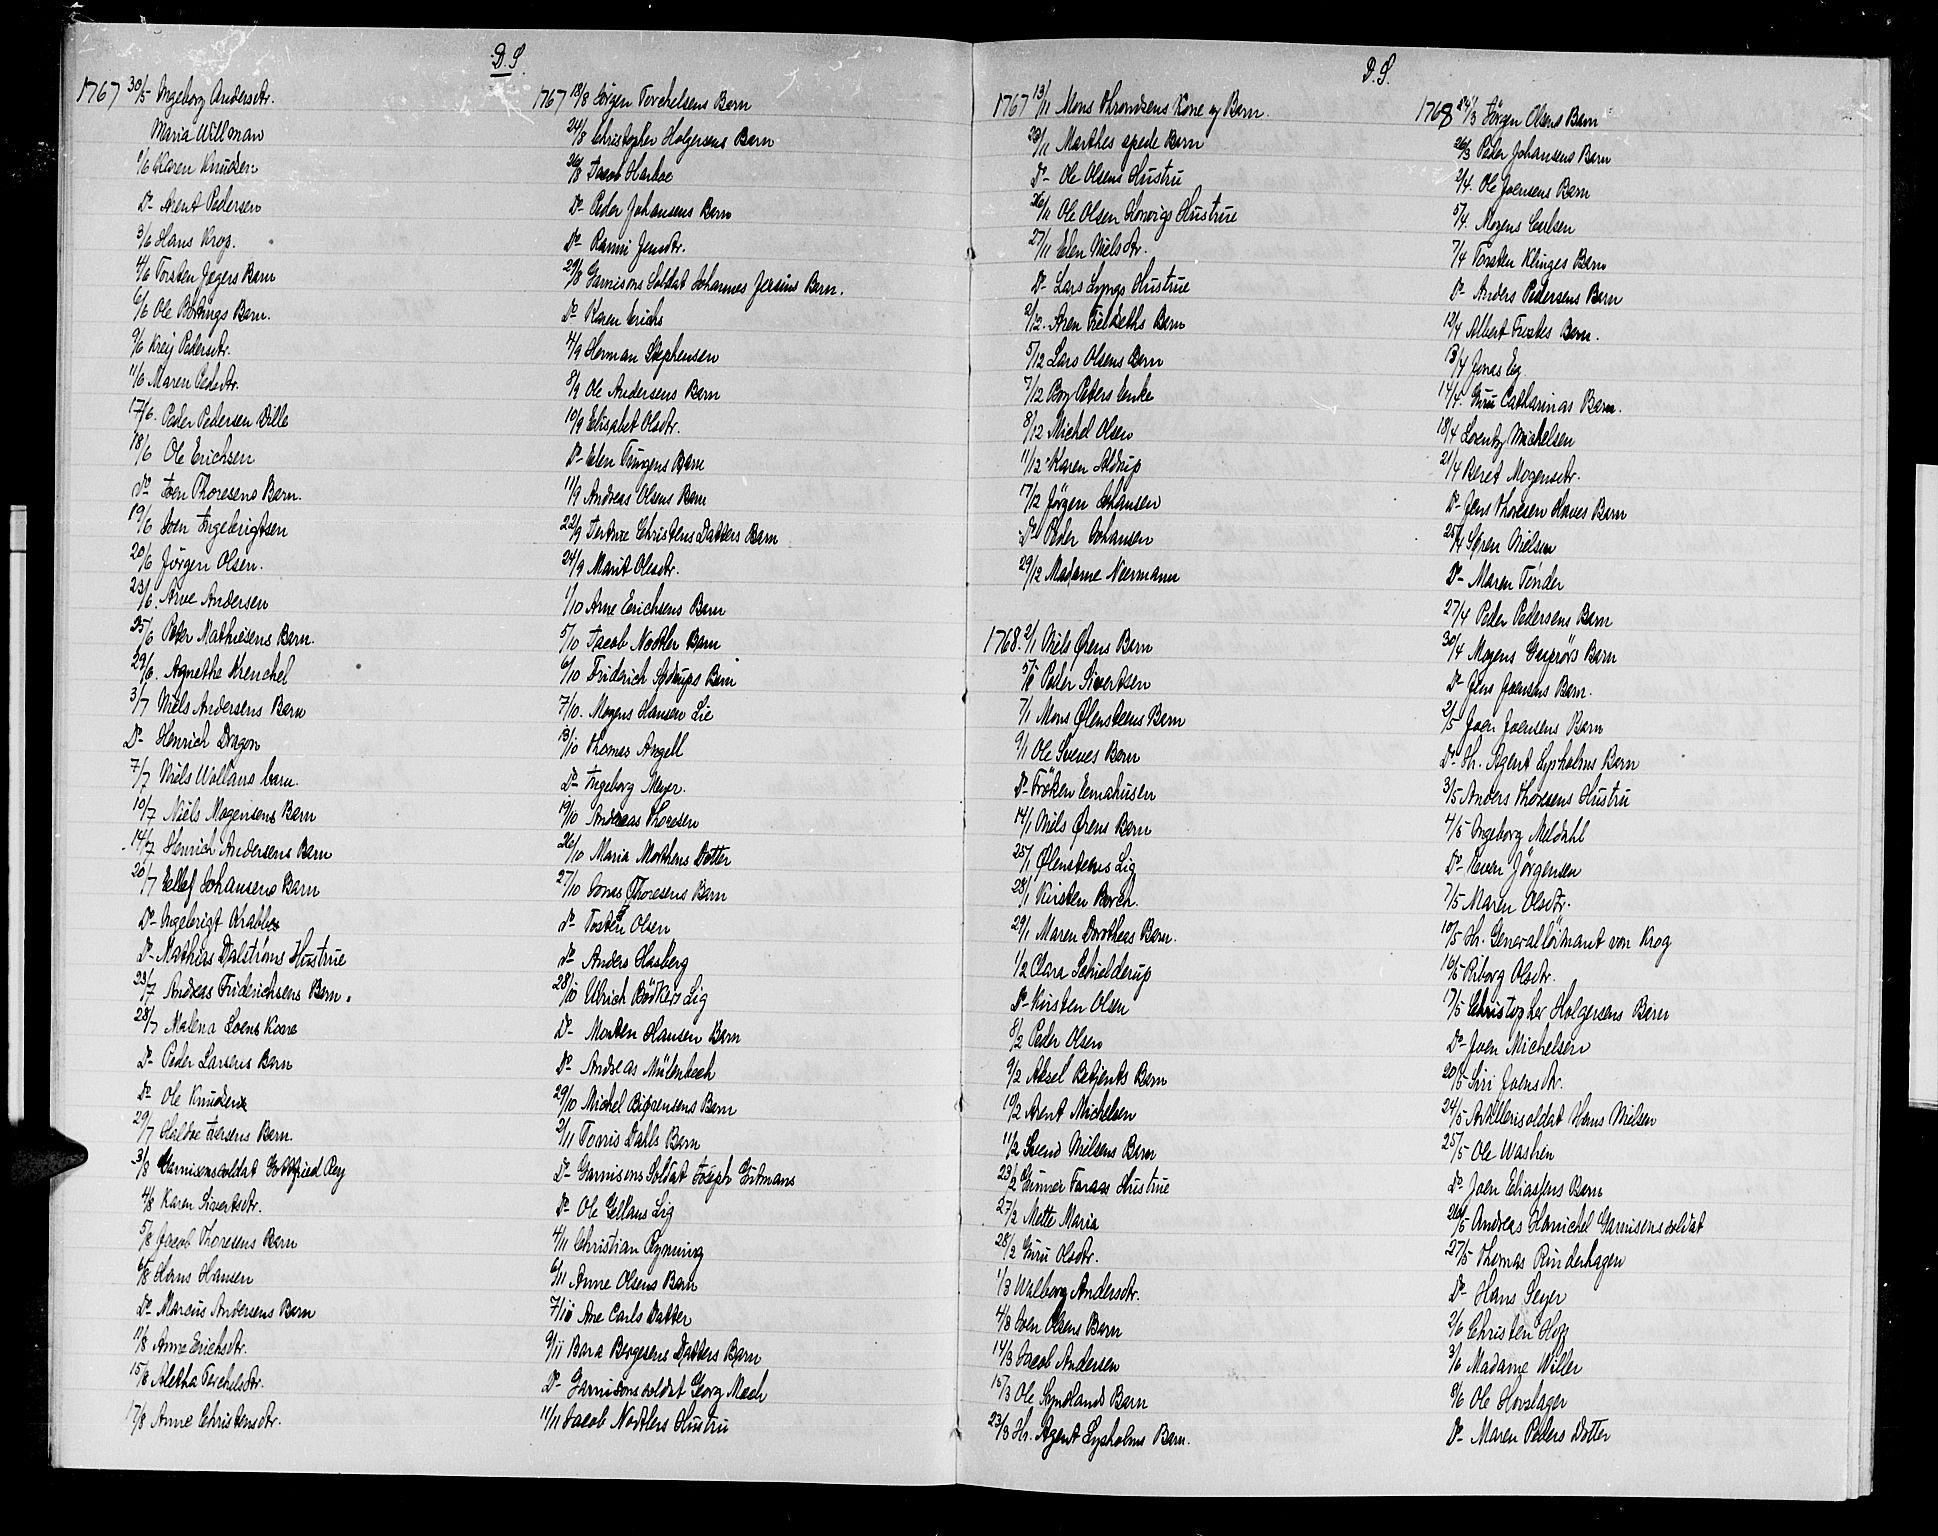 D.S.
1767 30/5 Ingeborg Andersdtr.
Maria Willman
1/6 Karen Knudsen
Do- Arent Pedersen
3/6 Hans Krog.
4/6 Torsten Jægers Barn
6/6 Ole Barn.
9/6 Pedersdtr.
11/6 Maren Pedsdtr.
17/6. Peder Pedersen Dille
18/6 Ole Erichsen
Do Joen Thoresens Barn.
19/6 Joen Ingebrigtsen
20/6 Jörgen Olsen.
23/6. Arve Andersen
25/6 Peter Mathiesens Barn.
29/6. Agnethe Krenchel
3/7 Niels Andersens Barn
Do- Henrich Dragon
7/7 Niels Wollans barn.
10/7 Niels Mogensens Barn
14/7 Henrich Andersens Barn
20/7 Ellef Johansens Barn
Do- Ingebrigt Krabbes
Do- Mathias Dalströms Hustrue
23/7 Andreas Friderichsens Barn.
28/7 Malena Soens Kone
Do- Peder Larsens Barn
Do- Ole Knudsen
29/7 Halvoe Iversens Barn.
3/8 Garnisonsoldat Gottfried Rey
4/8 Karen Sivertsdtr.
5/8 Jacob Thoresens Barn
6/8 Hans Hansen
Do- Marcus Andersens Barn
11/8 Anne Erichsdtr.
15/8 Aletha Torchelsdtr.
17/8 Anne Christensdtr.
1767 18/8 Jörgen Torchelsens Barn
24/8 Christopher Holgersens Barn
26/8 Jacob Harboe
Do- Peder Johansens Barn
Do- Ranni Jensdtr.
29/8 Garnisons Soldat Johannes Jersins Barn.
Do- Karen Erichs
4/9 Herman Stephensen
8/9 Ole Andersens Barn
10/9 Elisabet Olsdtr.
Do- Elen Trugens Barn
11/9 Andreas Olsens Barn
22/9 Christens Datters Barn
24/9 Marit Olesdtr.
1/10 Arne Erichsens Barn
5/10 Jacob Nodtler Barn
6/10 Friderich Sydrups Barn
7/10. Mogens Hansen Lie
13/10 Thomas Angell
Do- Ingeborg Meyer.
19/10 Andreas Thoresen
26/10 Maria Morthens Dotter
27/10 Jonas Thoresens Barn
Do- Tosten Olsen
Do- Anders Hasberg
28/10 Ulrich Bödkers Lig
Do- Morten Hansen Barn
Do- Andreas Mülenbech
29/10 Michel Biörensens Barn
2/11 Tørris Dahls Barn
Do- Garnisons Soldat Joseph Gutmans
Do- Ole Gellans Lig
4/11 Christian Rynning
6/11 Anne Olsens Barn
7/11 Ane Carls Datter
9/11 Bara Børgesens Datters Barn
Do- Garnisonssoldat Georg Mech
11/11 Jacob Nordtlers Hustru
D.S.
1767 13/11 Mons Throndsens Kone og Barn.
23/11 Marthes spede Barn
Do- Ole Olsens Hustru
26/11 Ole Olsen Horwigs Hustrue
27/11 Elen Nielsdtr.
Do- Lars Lyngs Hustrue
2/12. Aren Barn
5/12 Lars Olsens Barn
7/12 Roy Peders Enke
8/12 Michel Olsen
11/12 Karen Aldrup
17/12 Jörgen Johansen
Do- Peder Johansen
29/12 Madame Neermann
1768. 2/1 Niels Ørens Barn
5/1 Peder Sivertsen
7/1 Mons Ølensteens Barn
9/1 Ole Svenes Barn
Do- Fröken Emahusen
14/1 Niels Ørens Barn
25/1 Ølensteens Lig
28/1 Kirsten Borch.
29/1 Maren Dorotheas Barn.
1/2 Clara Schielderup
Do- Kirsten Olsen
8/2 Peder Olsen
9/2 Aksel Betjents Barn
10/2 Arent Michelsen
11/2 Svend Nielsens Barn
23/2 Gunner Faraas Hustrue
27/2 Mette Maria
28/2 Guru Olsdtr.
1/3 Walborg Andersdtr.
4/3 Joen Olsens Barn
14/3 Jacob Andersen
15/3 Ole Syndlands Barn
23/3 Hr. Agent Lysholms Barn.
1768 24/3 Jörgen Olsens Barn
26/3 Peder Johansens Barn
2/4. Ole Joensens Barn
5/4. Mogens Carlsen
7/4 Torsten Klinges Barn
Do- Anders Pedersens Barn
12/4 Albert Frostes Barn.
13/4 Jonas Eg
14/4. Guru Catharinas Barn.
18/4 Lorentz Michelsen
21/4 Beret Mogensdtr.
Do- Jens Thoresen Haves Barn
25/4 Sören Nielsen
Do- Maren Tönder
27/4 Peder Pedersens Barn
30/4 Mogens Barn
Do- Jens Joensens Barn.
2/5 Joen Joensens Barn
Do- Hr. Agent Lysholms Barn
3/5 Anders Thoresens Hustru
4/5 Ingeborg Meldahl
Do- Even Jörgensen
7/5 Maren Olsdtr.
10/5 Hr. Generalloitnant von Krog
16/5 Riborg Olsdtr.
17/5 Christopher Holgersens Barn
Do- Joen Michelsen
20/5 Siri Joensdtr.
24/5 Artillerisoldat Hans Nielsen
25/5 Ole Washen
Do- Joen Eliassens Barn
26/5 Andreas Harnichel Garnisonssoldat
27/5 Thomas Rinderhagen
Do- Hans Geyer
2/6 Christen Hoff
3/6 Madame Willer
8/6 Ole Hovslager
Do- Maren Peders Dotter